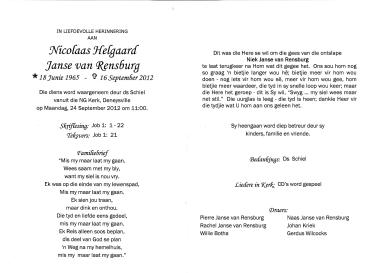 IN LIEFDEVOLLE HERINNERING
AAN
Nicolaas Helgaard
Janse van Rensburg
18 Junie 1965 - 16 September 2012
Die diens word waargeneem deur ds Schiel
vanuit die NG Kerk, Deneysville
op Maandag, 24 September 2012 om 11:00.
Skriflesing: Job 1: 1 - 22
Teksvers: Job 1: 21
Familiebrief
"Mis my maar laat my gaan.
Wees saam met my bly,
want my siel is nou vry.
Ek was op die einde van my lewenspad,
Mis my maar laat my gaan.
Ek sien jou traan,
maar dink en onthou.
Die tyd en liefde eens gedeel,
mis my maar laat my gaan.
Ek Reis alleen soos beplan,
dis deel van God se plan
'n Weg na my hemelhuis,
mis my maar laat my gaan."
Dit was die Here se wil om die gees van die ontslape
Niek Janse van Rensburg
te laat terugkeer na Hom wat dit gegee het. Ons sou hom nog
so graag 'n bietjie langer wou hê; bietjie meer vir hom wou
doen - aan hom nog iets wou sê; bietjie meer vir hom omgee,
bietjie meer waardeer, die tyd in sy snelle loop wou keer; maar
die Here het geroep - dit is Sy wil, "Swyg ... my siel wees maar
net stil." Die uurglas is leeg - die tyd is heen; dankie Heer vir
die tydjie wat U hom aan ons geleen het.
Sy heengaan word diep betreur deur sy
kinders, familie en vriende.
Bedankings: Ds Schiel
Liedere in Kerk: CD's word gespeel
Draers:
Pierre Janse van Rensburg Naas Janse van Rensburg
Rachel Janse van Rensburg Johan Kriek
Willie Botha Gerdus Wilcocks